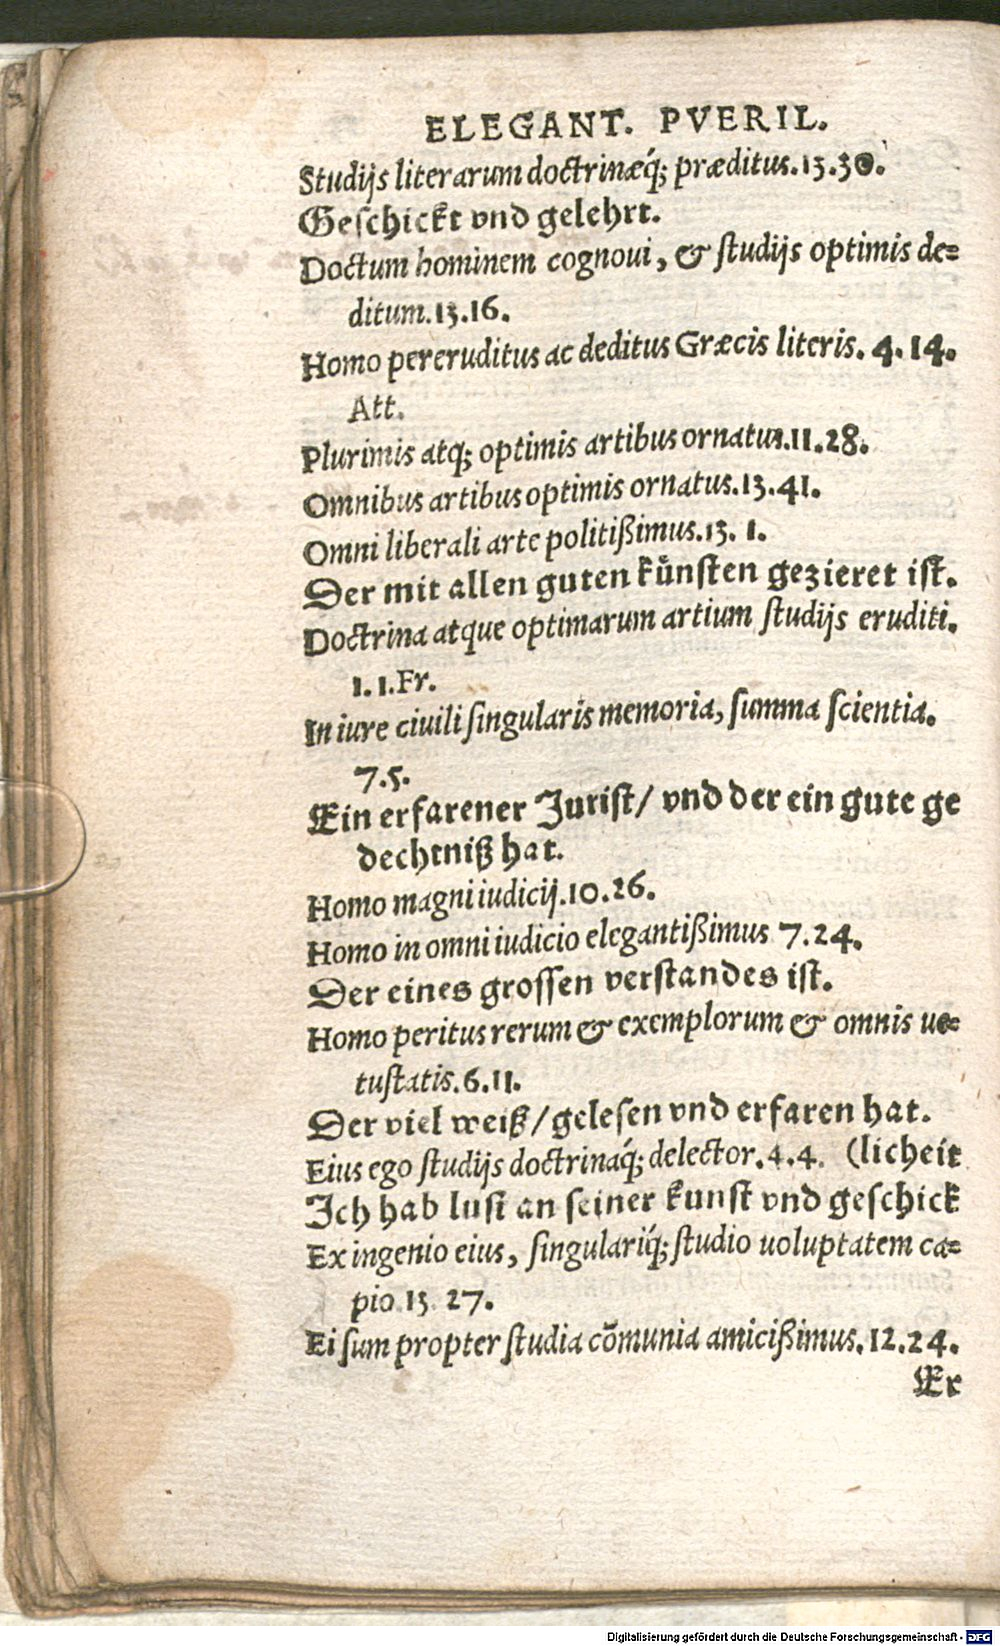 ELEGANT. PVERIL.
Studijs literarum doctrinæq́; præditus. 13.30.
Geschickt vnd gelehrt.
Doctum hominem cognoui, & studijs optimis de=
ditum. 13.16.
Homo pereruditus ac deditus Græcis literis. 4. 14.
Att.
Plurimis atq; optimis artibus ornatus. 11.28.
Omnibus artibus optimis ornatus. 13.41.
Omni liberali arte politißimus. 13. 1.
Der mit allen guten kuͤnsten gezieret ist.
Doctrina atque optimarum artium studijs eruditi.
1. 1. Fr.
In iure ciuili singularis memoria, summa scientia.
7.5.
Ein erfarener Jurist/ vnd der ein gute ge
dechtniß hat.
Homo magni iudicij. 10.26.
Homo in omni iudicio elegantißimus 7.24.
Der eines grossen verstandes ist.
Homo peritus rerum & exemplorum & omnis ue=
tustatis. 6.11.
Der viel weiß/ gelesen vnd erfaren hat.
Eius ego studijs doctrinaq́; delector. 4.4. (licheit
Ich hab lust an seiner kunst vnd geschick
Ex ingenio eius, singulariq́; studio uoluptatem ca=
pio. 13 27.
Ei sum propter studia cōmunia amicißimus. 12.24.
Er
Digitalisierung gefördert durch die Deutsche Forschungsgemeinschaft - DFG